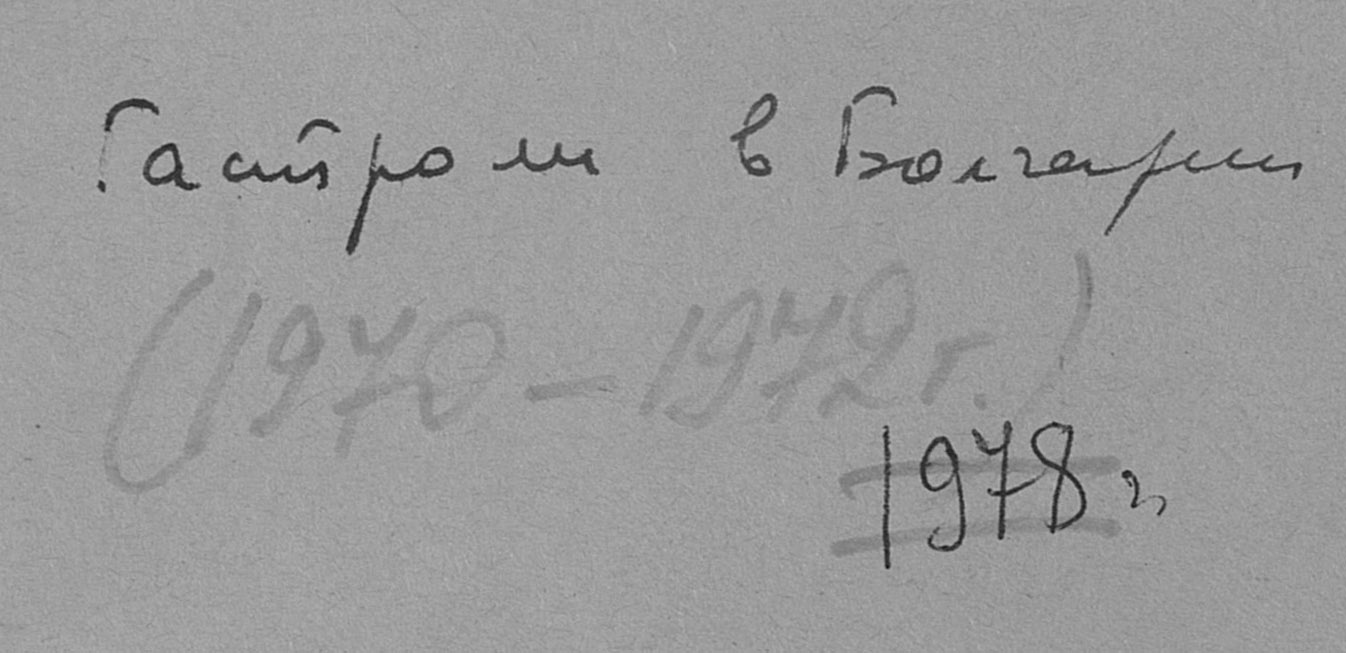 Гастроли в Болгарии
(1970-1972г.)
1978 г.